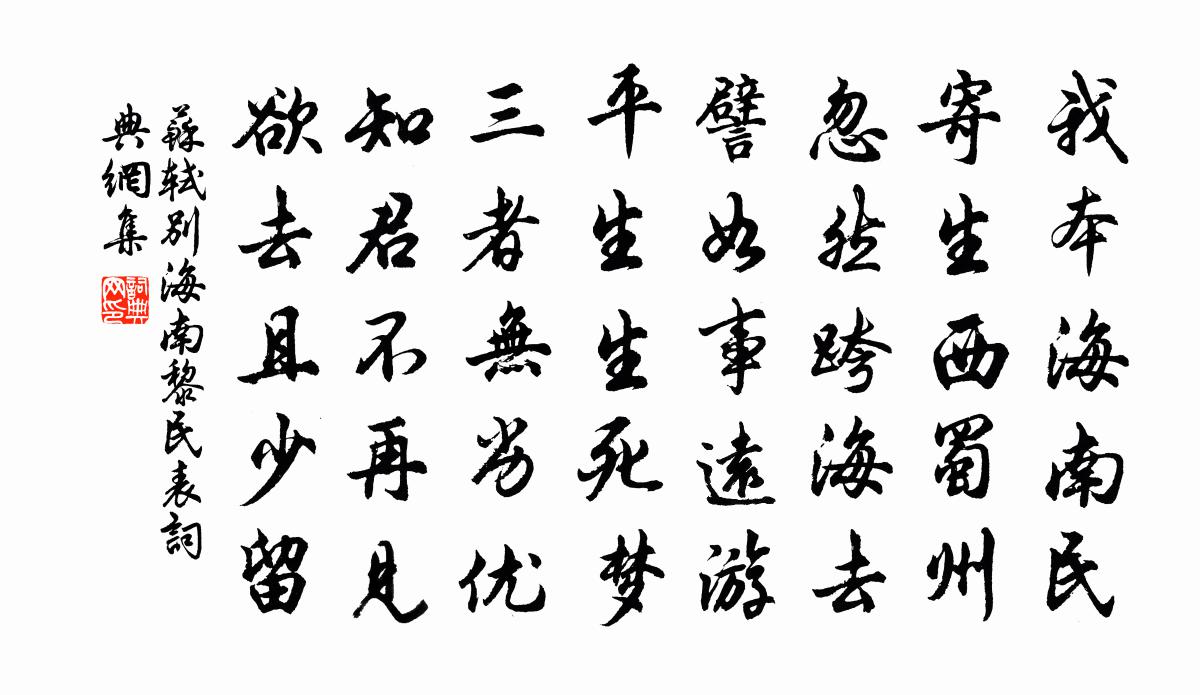 我本海南民
寄生西蜀州
忽然跨海去
譬如事遠游
平生生死梦
三者無劣优
知君不再見
欲去且少留
蘇軾别海南黎民表詞
典網集
詞典
网印